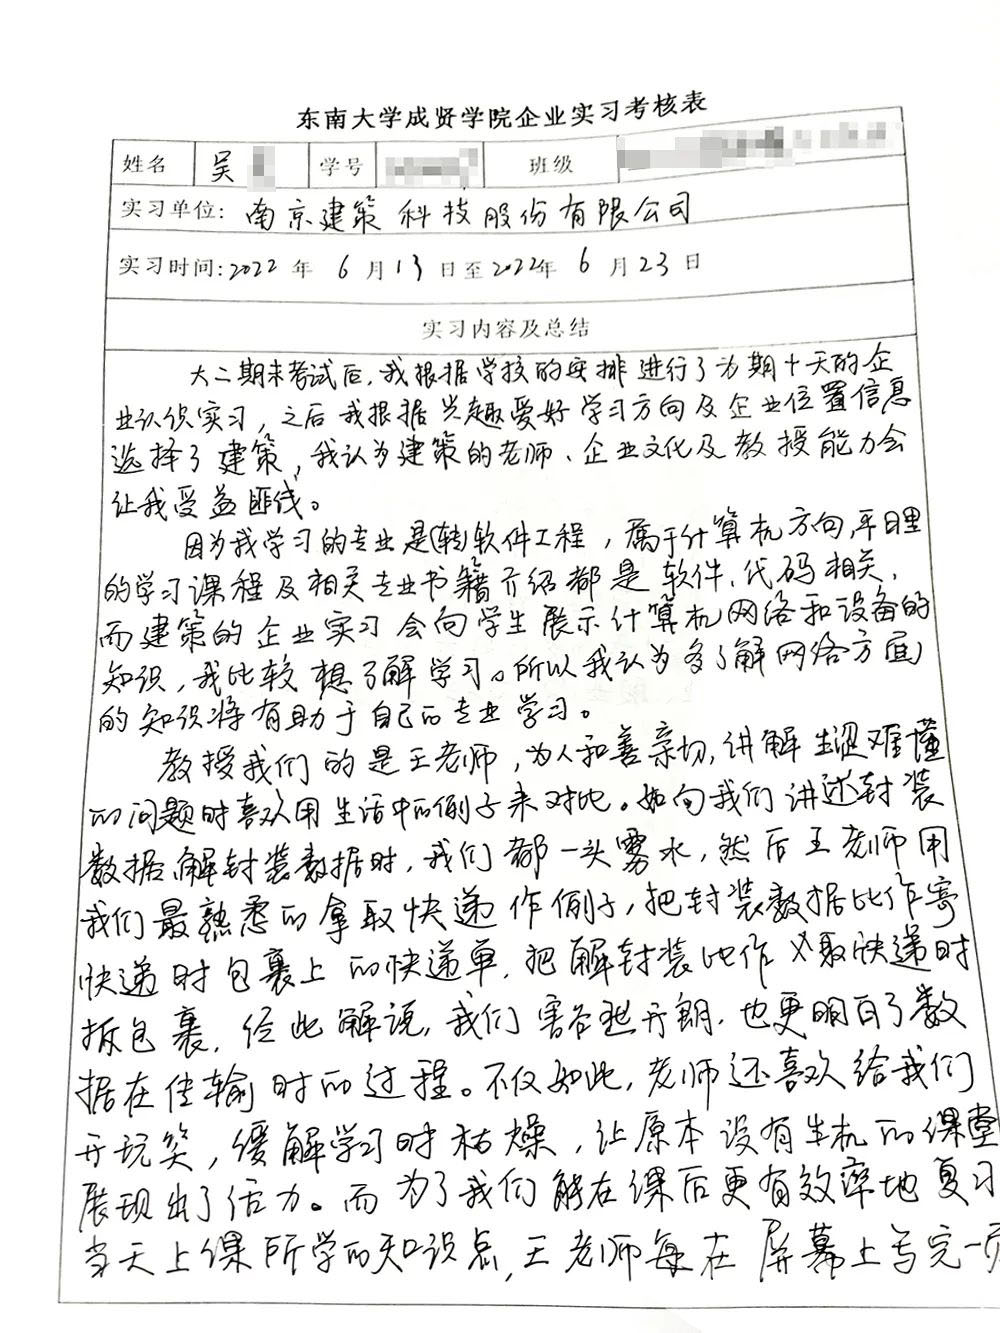 东南大学成贤学院企业实习考核表
姓名 吴 学号 班级
实习单位: 南京建策科技股份有限公司
实习时间:2022年 6月13日至2022年 6月23日
实习内容及总结
大二期末考试后,我根据学校的安排进行了为期十天的企
业认识实习,之后我根据兴趣爱好学习方向及企业位置信息
选择了建策,我认为建策的老师、企业文化及教授能力会
让我受益匪浅。
因为我学习的专业是(转)软件工程,属于计算机方向,平日里
的学习课程及相关专业书籍介绍都是软件、代码相关,
而建策的企业实习会向学生展示计算机网络和设备的
知识,我比较想了解学习。所以我认为多了解网络方面
的知识将有助于自己的专业学习。
教授我们的是王老师,为人和善亲切,讲解生涩难懂
的问题时喜欢用生活中的例子来对比。如向我们讲述封装
数据,解封装数据时,我们都一头雾水,然后王老师用
我们最熟悉的拿取快递作例子,把封装数据比作寄
快递时包裹上的快递单,把解封装比作收取快递时
拆包裹,经此解说,我们豁然开朗,也更明白了数
据在传输时的过程。不仅如此,老师还喜欢给我们
开玩笑,缓解学习时枯燥,让原本没有生机的课堂
展现出了活力。而为了我们能在课后更有效率地复习
当天上课所学的知识点,王老师每在屏幕上写完一页